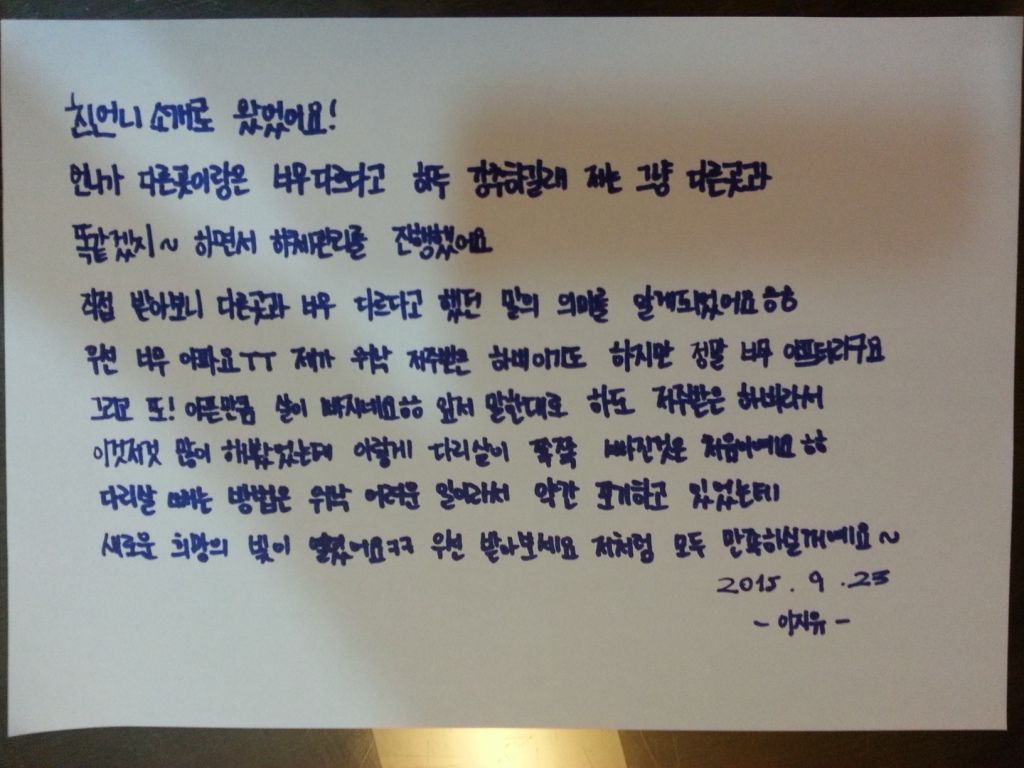 친언니 소개로 왔었어요!
언니가 다른곳이랑은 너무다르다고 하두 강추하길래 저는 그냥 다른곳과
똑같겠지~ 하면서 하체관리를 진행했어요
직접 받아보니 다른곳과 너무 다르다고 했던 말의 의미를 알게되었어요ㅎㅎ
우선 너무 아파요ㅜㅜ 제가 워낙 저주받은 하배이기도 하지만 정말 너무 아프더라구요
그리고 또! 아픈만큼 살이 빠지네요ㅎㅎ 앞서 말한대로 하도 저주받은 하비라서
이것저것 많이 해봤었는데 이렇게 다리살이 쭉쭉 빠진것은 처음이에요ㅎㅎ
다리살 빼는 방법은 워낙 어려운 일이라서 약간 포기하고 있었는데
새로운 희망의 빛이 열렸어요ㅋㅋ 우선 받아보세요 저처럼 모두 만족하실거예요~
2015. 9 .23
- 이지유 -